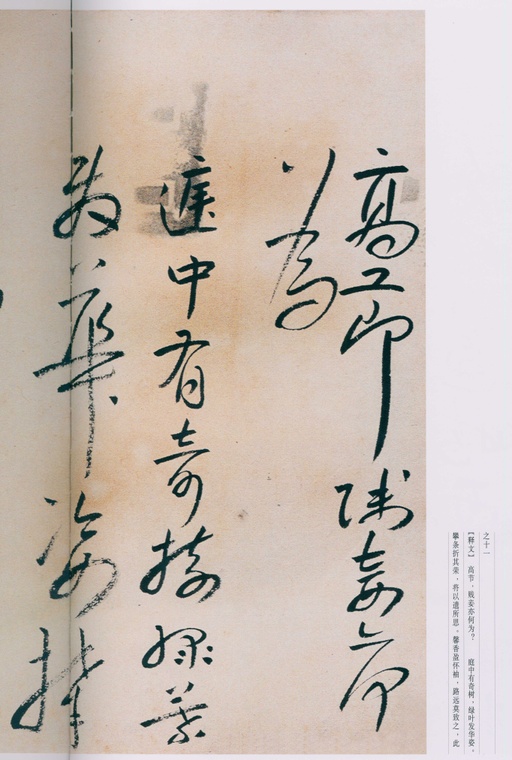 之十一
【释文】 高节，贱妾亦何为？ 庭中有奇树，绿叶发华姿，
攀条折其荣，将以遗所思，馨香盈怀袖，路远莫致之，此
高節賤妾亦何
為
庭中有奇樹綠葉
發華姿攀